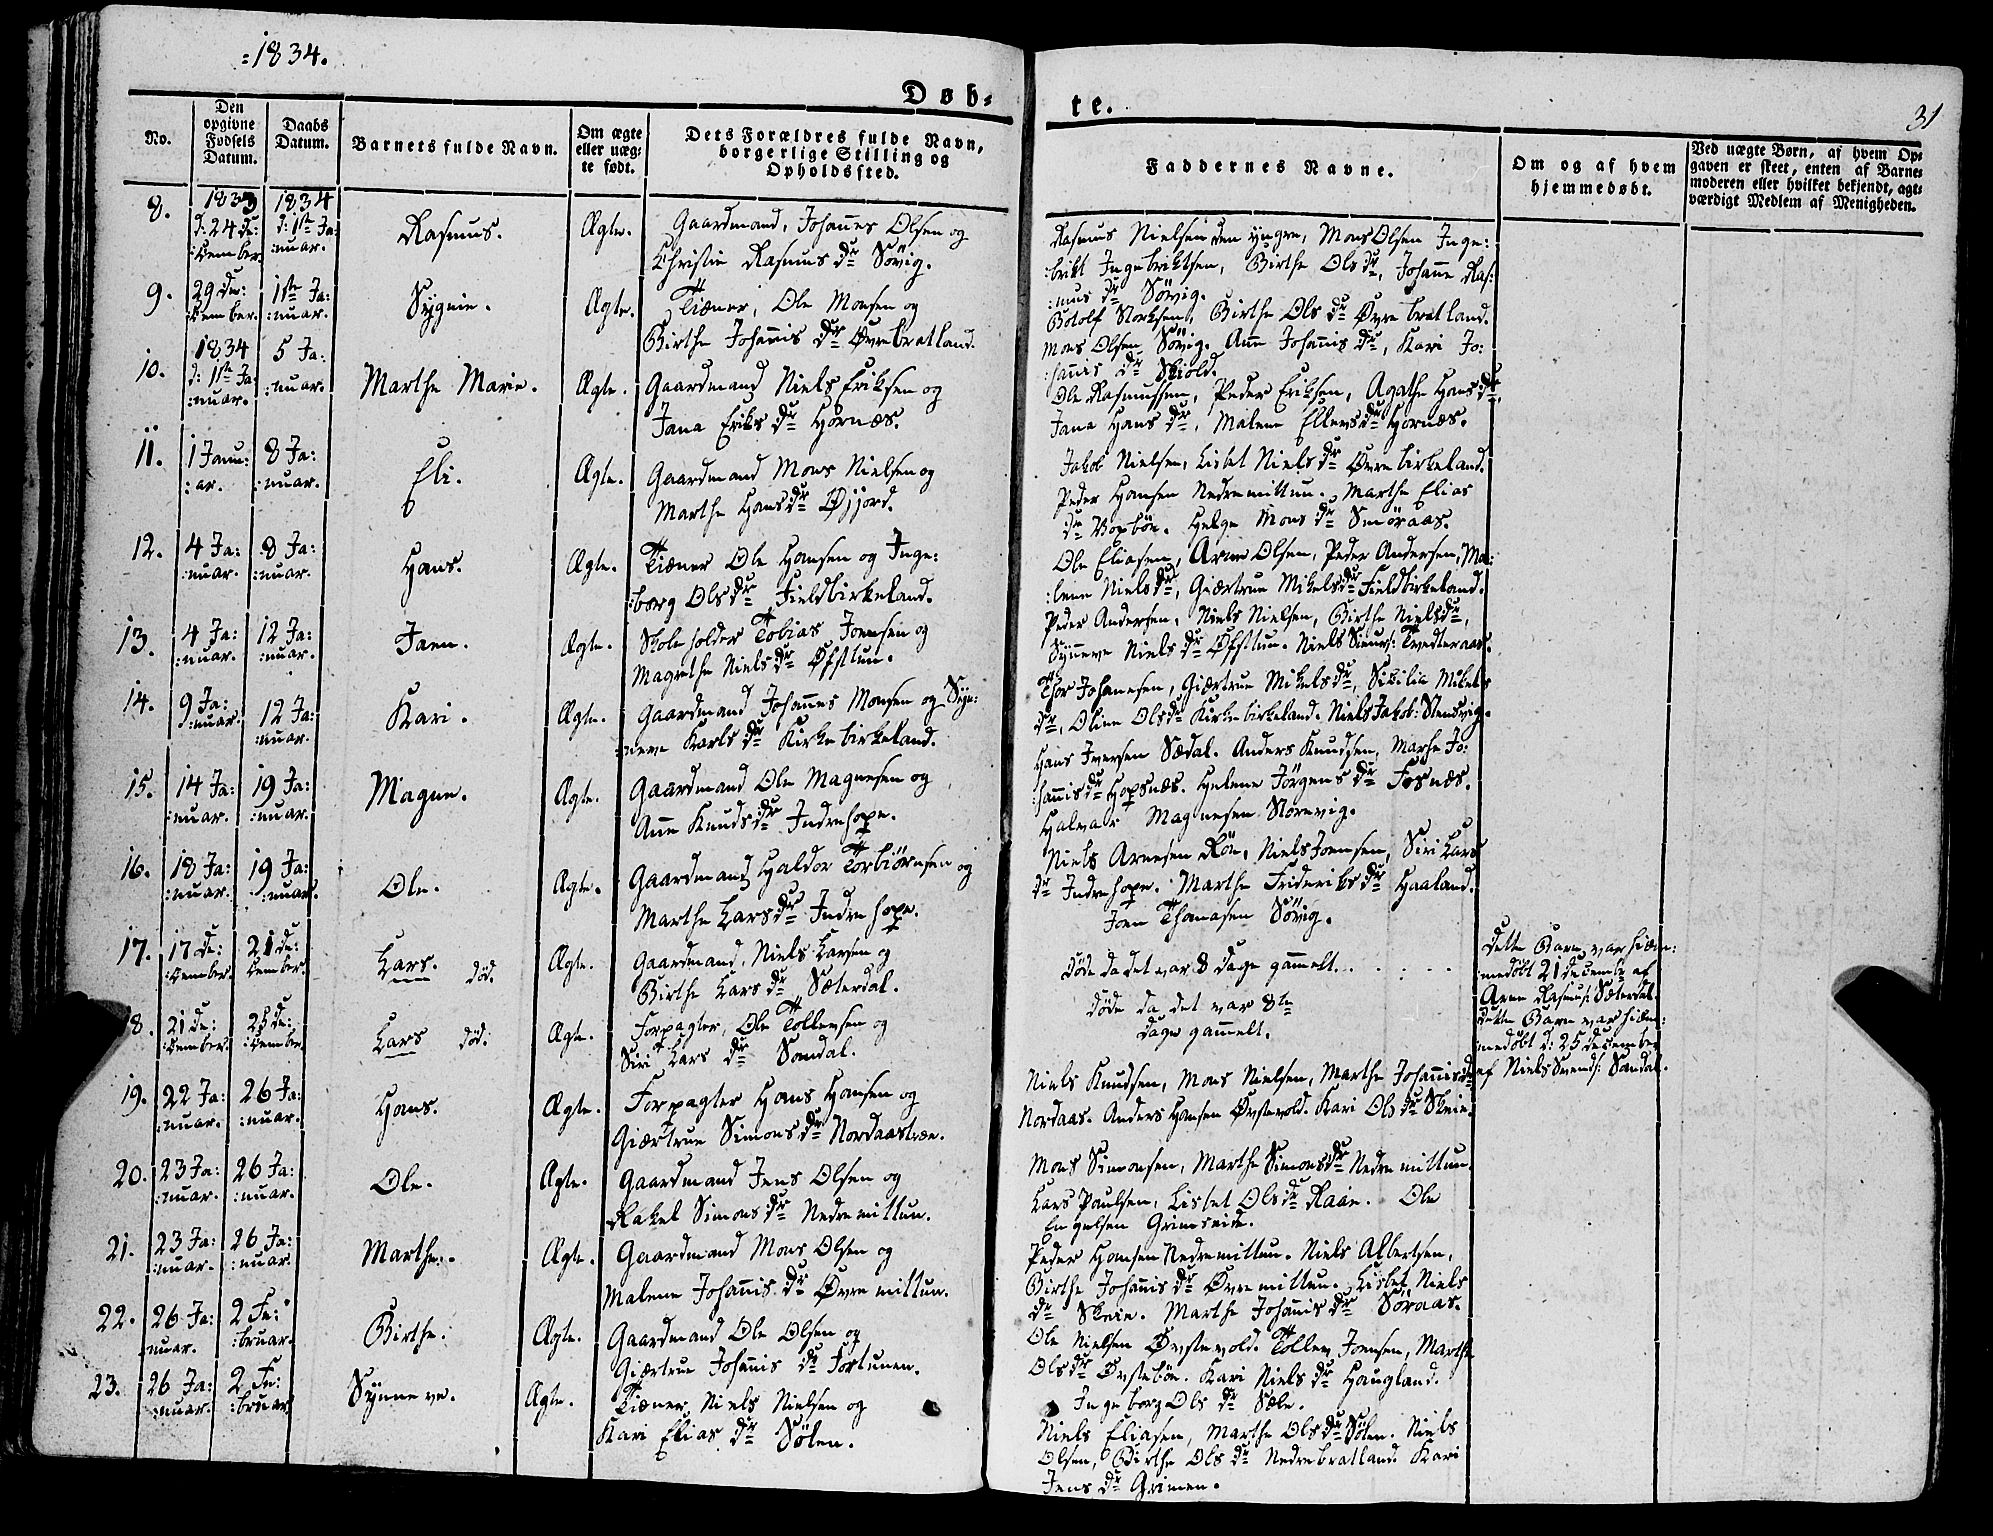 :1834.
Døb-
te.
31
No.
Den opgivne Fødsels Datum.
Daabs Datum.
Barnets fulde Navn.
Om ægte eller uæg- te født.
Dets Forældres fulde Navn, borgerlige Stilling og Opholdssted.
Faddernes Navne.
Om og af hvem hjemmedøbt.
Ved uægte Børn, af hvem Op- gaven er skeet, enten af Barne- moderen eller hvilket bekjendt, agt- værdigt Medlem af Menigheden.
8.
1833 d: 24 De: :cember.
1834 d: 1ste Ja: :nuar.
Rasmus.
Ægte.
Gaardmand, Johannes Olsen og
Christie Rasmus Dr Søvig.
Rasmus Nielsen den yngre, Mons Olsen Inge:
:brikt Ingebriktsen, Birthe Ols dr, Johanne Ras:
:mus dr Søvig.
9.
29 De: :cember.
1ste Ja: :nuar.
Sygnie.
Ægte.
Tiæner, Ole Monsen og
Birthe Johannis Dr Øvrebratland.
Botolf Storksen, Birthe Ols dr Øvre bratland.
Mons Olsen Søvig. Anne Johannis dr, Kari Jo:
:hannis dr Skiold.
10.
1834 d: 1ste Ja: :nuar.
5 Ja: :nuar.
Marthe Marie.
Ægte.
Gaardmand Niels Eriksen og
Jana Eriks dr Hornæs.
Ole Rasmussen, Peder Eriksen, Agathe Hans dr,
Jana Hans dr, Malene Ellens dr Hornæs.
11.
1 Janu: :ar.
8 Ja: :nuar.
Eli.
Ægte.
Gaardmand Mons Nielsen og
Marthe Hans dr Øjjord.
Jakob Nielsen, Lisbet Niels dr Øvre birkeland.
Peder Hansen Nedremittun. Marthe Elias
dr Vopbøe. Helge Mons dr Smøraas.
12.
4 Ja: :nuar.
8 Ja: :nuar.
Hans.
Ægte.
Tiæner Ole Hansen og Inge:
:borg Ols dr Fieldbirkeland.
Ole Eliasen, Arne Olsen, Peder Andersen, Ma:
:lene Niels dr, Giærtrue Mikels dr Fieldbirkeland.
13.
4 Ja: :nuar.
12 Ja: :nuar.
Joen.
Ægte.
Skoleholder Tobias Joensen og
Magrethe Niels dr Øfsttun.
Peder Andersen, Niels Nielsen, Birthe Niels dr,
Synneve Niels dr Øfsttun. Niels Siurs: Tvedteraas.
14.
9 Ja: :nuar.
12 Ja: :nuar.
Kari.
Ægte.
Gaardmand Johannes Monsen og Syn:
:neve Karls dr Kirkebirkeland.
Thor Johanesen, Giærtrue Mikels dr, Sikilia Mikels
dr, Oline Ols dr Kirkebirkeland. Niels Jakob: Stensvig.
15.
14 Ja: :nuar.
19 Ja: :nuar.
Magne.
Ægte.
Gaardmand Ole Magnesen og
Anne Knuds dr Indrehope.
Hans Iversen Sædal. Anders Knudsen, Marthe Jo:
:hannis dr Hopsnæs. Helene Jørgens dr Fosnæs.
Halvar Magnesen Storevig.
16.
18 Ja: :nuar.
19 Ja: :nuar.
Ole.
Ægte.
Gaardmand Haldor Torbiørnsen og
Marthe Lars dr Indrehope.
Niels Arnesen Røe, Niels Joensen, Siri Lars
dr Indrehope. Marthe Frideriks dr Haaland.
Joen Thomasen Søvig.
17.
17 De: :cember.
21 De: :cember.
Lars. død.
Ægte.
Gaardmand, Niels Larsen og
Birthe Lars dr Sæterdal.
Døde da det var 8 Dage gammelt. . . . . .
Dette Barn var hiæm:
:medøbt 21 Decembe af
Arne Rasmus: Sæterdal.
18.
21 De: :cember.
25 De: :cember.
Lars død.
Ægte.
Forpagter, Ole Tollevsen og
Siri Lars dr Sandal.
døde da det var 8te
Dage gammelt.
Dette Barn var hiæm:
:medøbt d: 25 December
af Niels Svends: Sandal.
19.
22 Ja: :nuar.
26 Ja: :nuar.
Hans.
Ægte.
Forpagter Hans Hansen og
Giærtrue Simons dr Nordaastræe.
Niels Knudsen, Mons Nielsen, Marthe Johannis dr
Nordaas. Anders Hansen Øvstevold. Kari Ols dr Skeie.
20.
23 Ja: :nuar.
26 Ja: :nuar.
Ole.
Ægte.
Gaardmand Jens Olsen og
Rakel Simons dr Nedremittun.
Mons Simonsen, Marthe Simons dr Nedremittun.
Lars Paulsen, Lisbet Ols dr Raae. Ole
Engelsen Grimseide.
21.
23 Ja: :nuar.
26 Ja: :nuar.
Marthe.
Ægte.
Gaardmand Mons Olsen og
Malene Johannis dr Øvre mittun.
Peder Hansen Nedremittun. Niels Albertsen,
Birthe Johannis dr Øvremittun. Lisbet Niels
dr Skeie. Marthe Johannis dr Søraas.
22.
26 Ja: nuar.
2 Fe: :bruar.
Birthe.
Ægte.
Gaardmand Ole Olsen og
Giærtrue Johannis dr Fortunen.
Ole Nielsen Øvstevold. Tollev Joensen, Marthe
Ols dr Øvstebøe. Kari Niels dr Haugland.
Ingeborg Ols dr Sæle.
23.
26 Ja: :nuar.
2 Fe: :bruar.
Synneve.
Ægte.
Tiæner, Niels Nielsen og
Kari Elias dr Sølen.
Niels Eliasen, Marthe Ols dr Sølen. Niels
Olsen, Birthe Ols dr Nedrebratland. Kari
Jens dr Grimen.